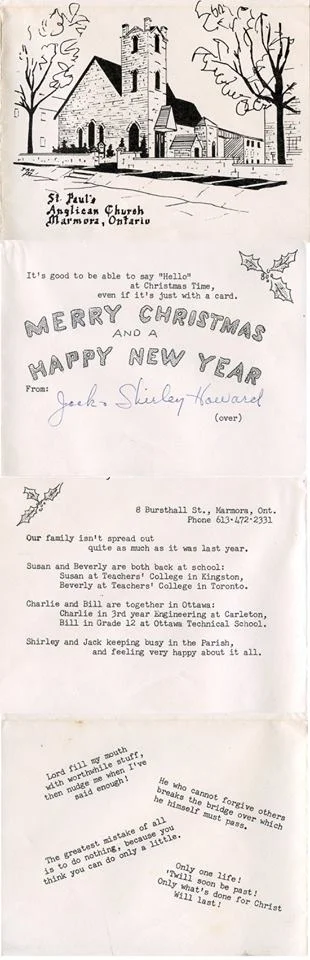 St. Paul's
Anglican Church
Marmora, Ontario
It's good to be able to say "Hello"
at Christmas Time,
even if it's just with a card.
MERRY CHRISTMAS
AND A
HAPPY NEW YEAR
From:
Jack & Shirley Howard
(over)
8 Bursthall St., Marmora, Ont.
Phone 613-472-2331
Our family isn't spread out
quite as much as it was last year.
Susan and Beverly are both back at school:
Susan at Teachers' College in Kingston,
Beverly at Teachers' College in Toronto.
Charlie and Bill are together in Ottawa:
Charlie in 3rd year Engineering at Carleton,
Bill in Grade 12 at Ottawa Technical School.
Shirley and Jack keeping busy in the Parish,
and feeling very happy about it all.
Lord fill my mouth
with worthwhile stuff,
then nudge me when I've
said enough!
He who cannot forgive others
breaks the bridge over which
he himself must pass.
The greatest mistake of all
is to do nothing, because you
think you can do only a little.
Only one life!
'Twill soon be past!
Only what's done for Christ
Will last!